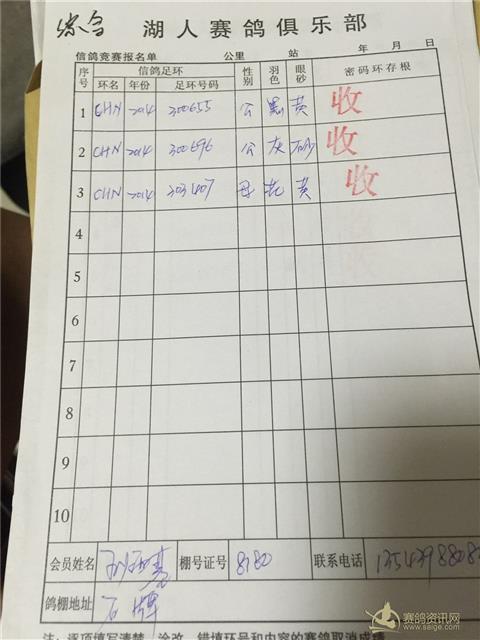 湖人赛鸽俱乐部
信鸽竞赛报名单 公里 站 年 月 日
序号 信鸽足环 性别 羽色 眼砂 密码环存根
环名 年份 足环号码
1 CHN 2014 300655 公 黑 黄 收
2 CHN 2014 300696 公 灰 砂 收
3 CHN 2014 母 花 黄 收
4
5
6
7
8
9
10
会员姓名 棚号证号 8180 联系电话
鸽棚地址 石牌
注：逐项填写清楚，涂改、错填环号和内容的赛鸽取消成绩
赛鸽资讯网
www.saige.com